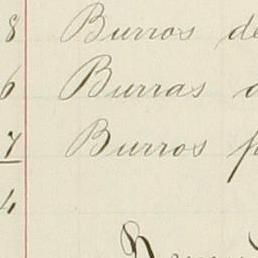 8 Burros de
6 Burras
7 Burros p
4